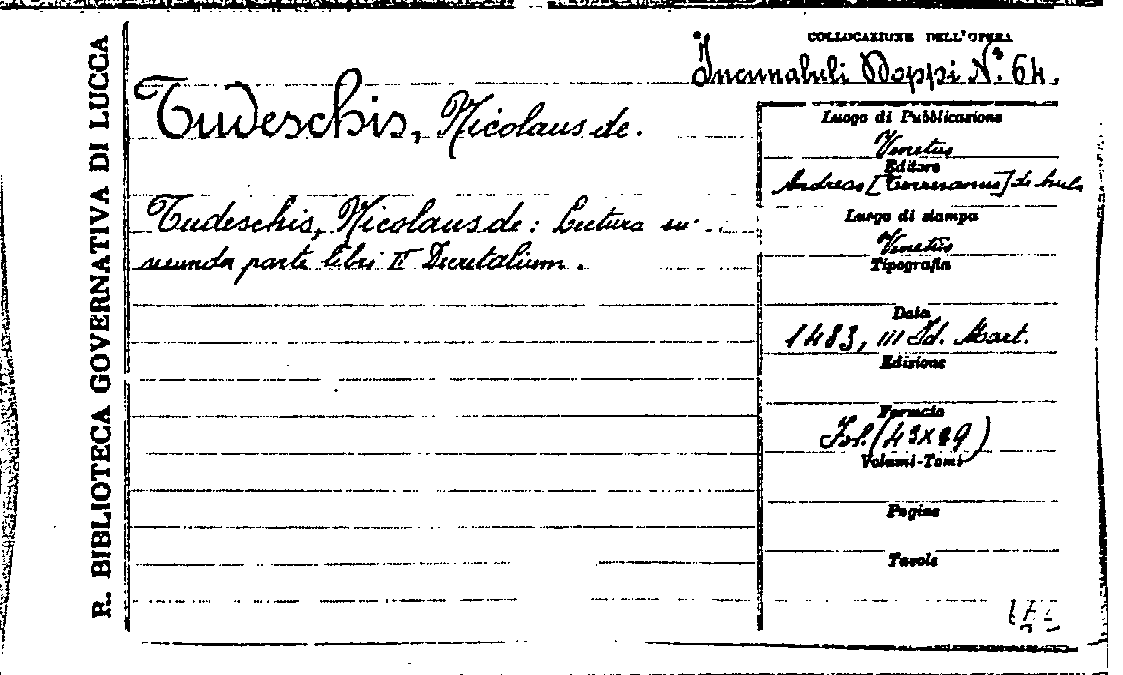 R. BIBLIOTECA GOVERNATIVA DI LUCCA
COLLOCAZIONE DELL'OPERA
Incunabuli Doppi N.º 64.
Tudeschis, Nicolaus de.
Tudeschis, Nicolaus de: Lectura in
secunda parte libri II Decretalium.
Luogo di Pubblicazione
Venetiis
Editore
Andreas [Torresanus] de
Luogo di stampa
Venetiis
Tipografia
Data
1483, III Id. Mart.
Edizione
Formato
Fol. (43x29)
Volumi-Tomi
Pagine
Tavole